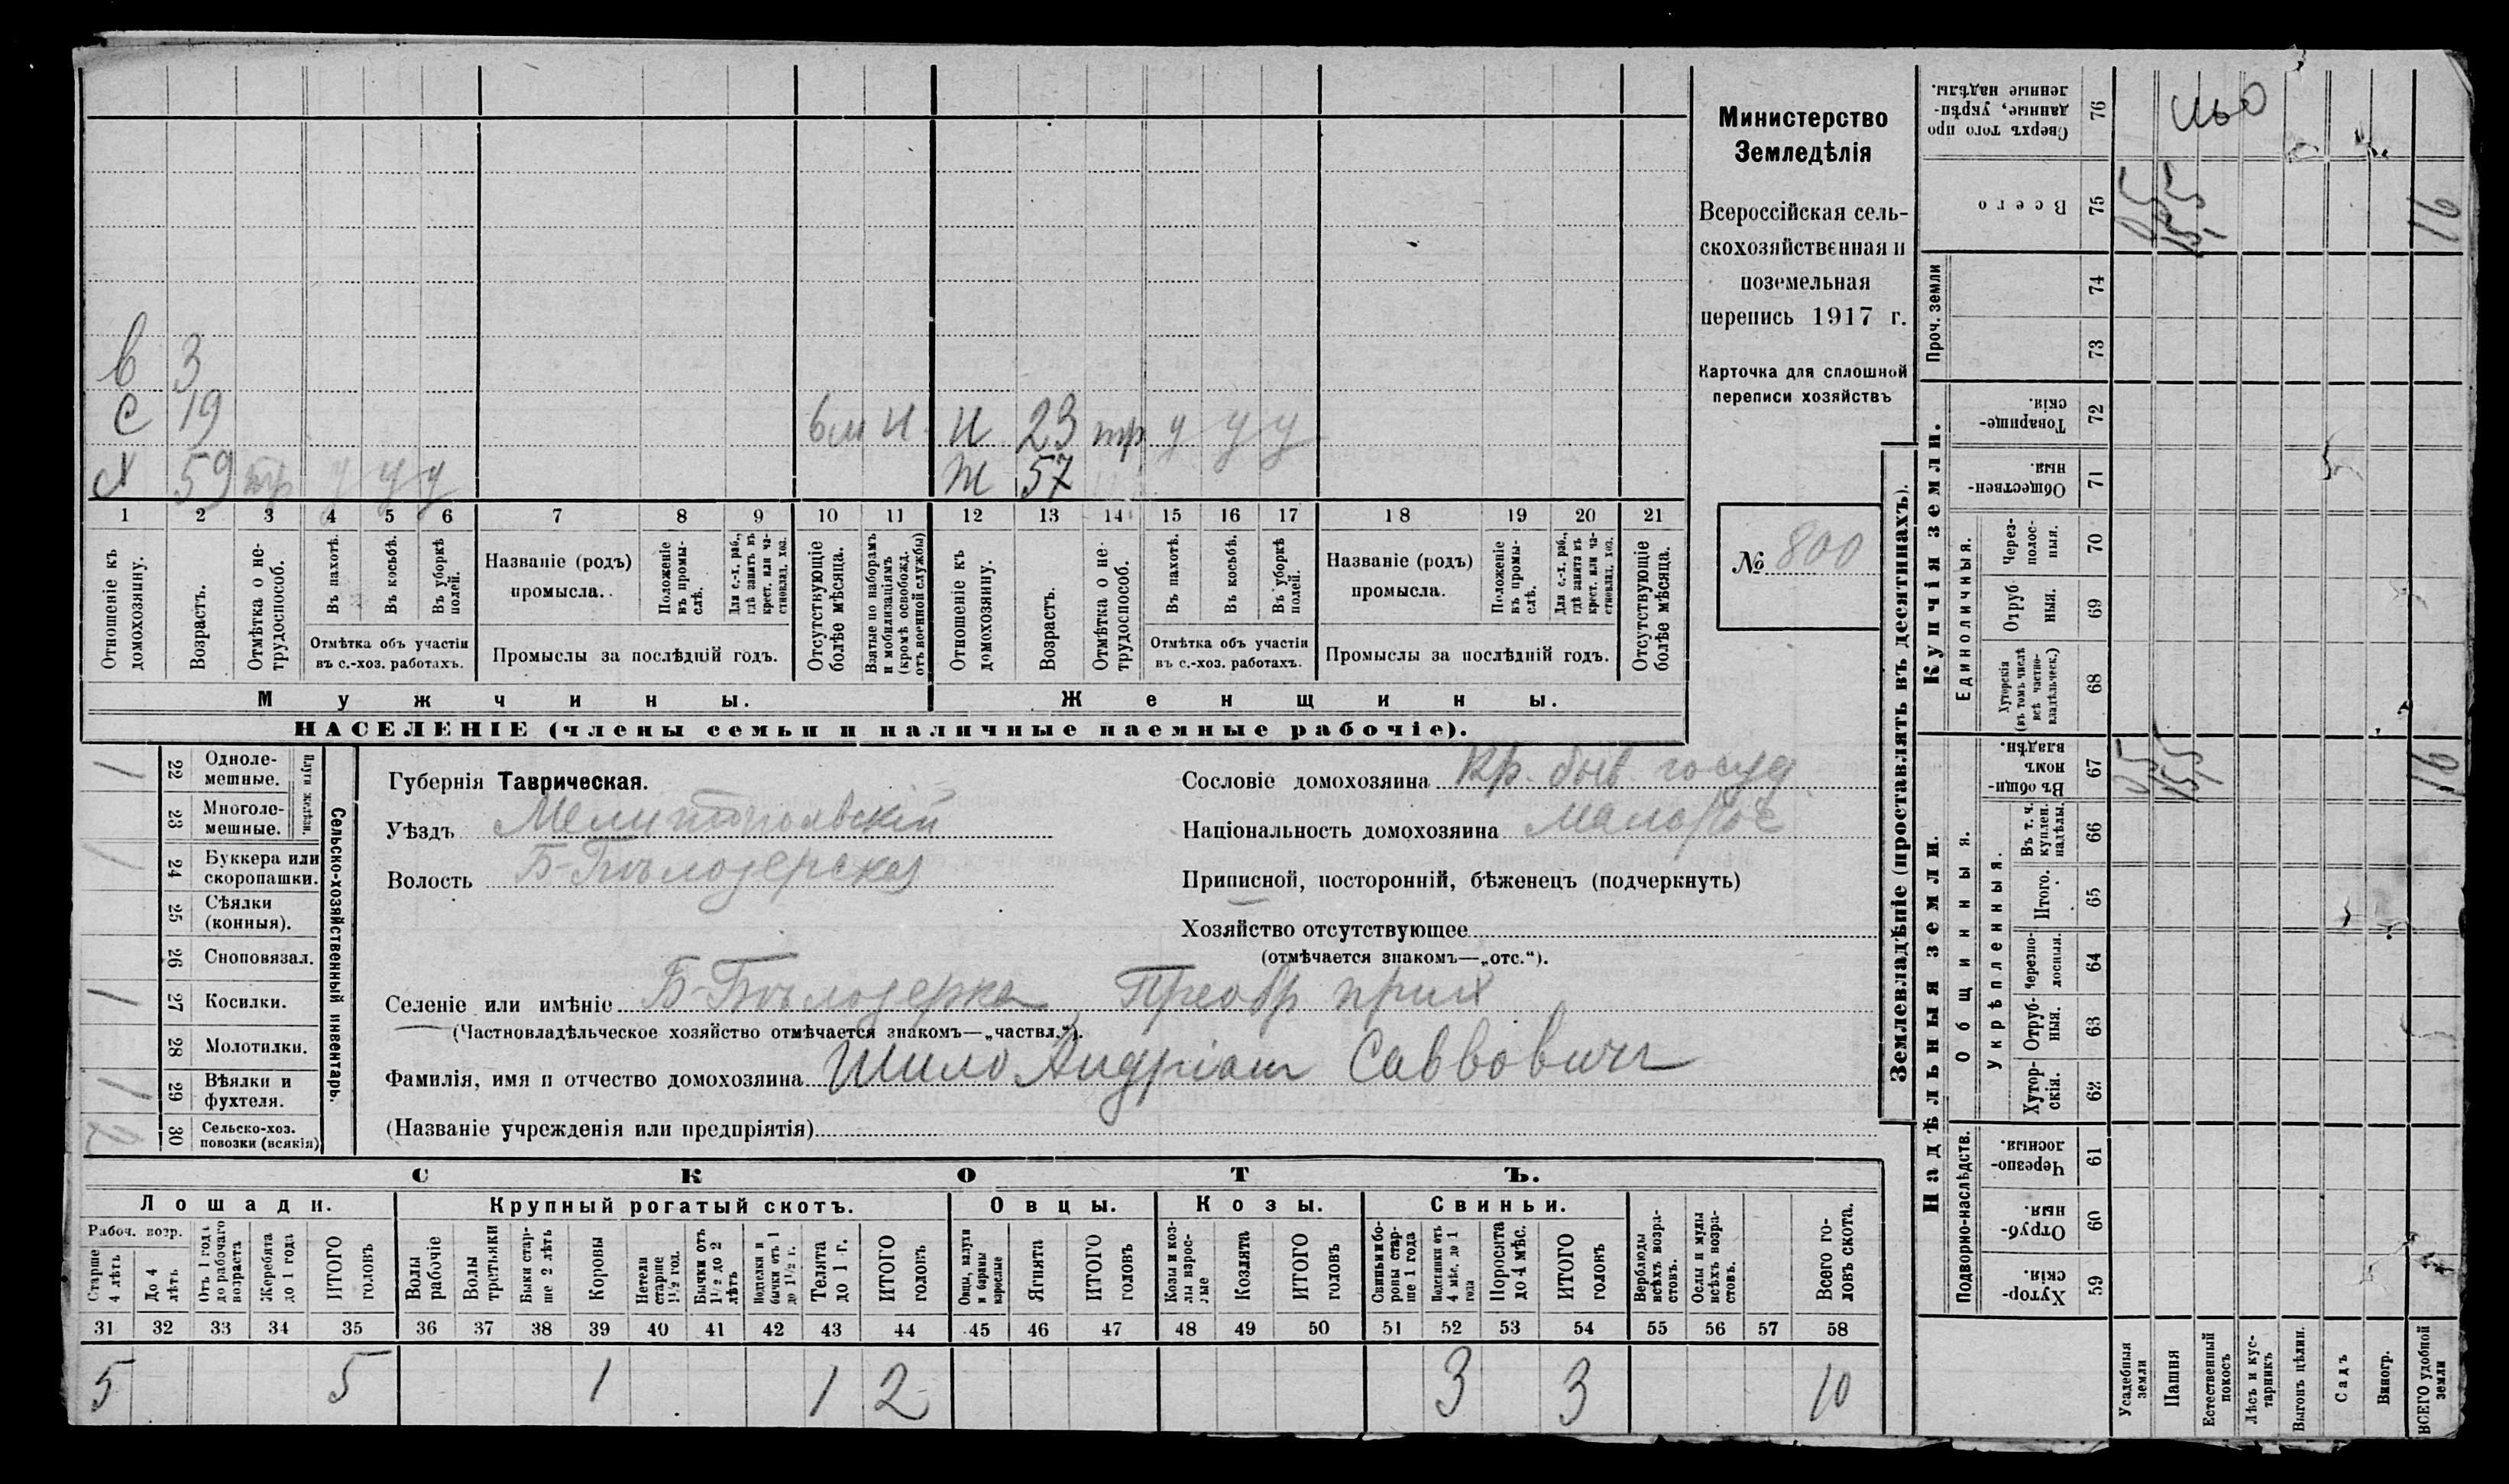 в 3
с 19 6м н н 23 тр у у у
х 59 тр у у у ж 57
1 2 3 4 5 6 7 8 9 10 11 12 13 14 15 16 17 18 19 20 21
Отношеніе къ домохозяину.
Возрастъ.
Отмѣтка о не-
трудоспособ.
Въ пахотѣ.
Въ косьбѣ.
Въ уборкѣ
полей.
Отмѣтка объ участіи
въ с.-хоз. работахъ.
Названіе (родъ)
промысла.
Положеніе
въ промы-
слѣ.
Для с.-х. раб.,
гдѣ занятъ въ
крест. или ча-
стновлад. хоз.
Промыслы за послѣдній годъ.
Отсутствующіе
болѣе мѣсяца.
Взятые по наборамъ
и мобилизаціямъ
(кромѣ освобожд.
отъ военной службы)
Отношеніе къ
домохозяину.
Возрастъ.
Отмѣтка о не-
трудоспособ.
Въ пахотѣ.
Въ косьбѣ.
Въ уборкѣ
полей.
Отмѣтка объ участіи
въ с.-хоз. работахъ.
Названіе (родъ)
промысла.
Положеніе
въ промы-
слѣ.
Для с.-х. раб.,
гдѣ занята въ
крест. или ча-
стновлад. хоз.
Промыслы за послѣдній годъ.
Отсутствующіе
болѣе мѣсяца.
Мужчины.
Женщины.
НАСЕЛЕНІЕ (члены семьи и наличные наемные рабочіе).
Министерство
Земледѣлія
Всероссійская сель-
скохозяйственная и
поземельная
перепись 1917 г.
Карточка для сплошной
переписи хозяйствъ
№ 800
Сельско-хозяйственный инвентарь.
Плуги желѣзн.
1 22 Одноле-
мешные.
23 Многоле-
мешные.
1 24 Буккера или
скоропашки.
25 Сѣялки
(конныя).
26 Сноповязал.
1 27 Косилки.
28 Молотилки.
1 29 Вѣялки и
фухтеля.
2 30 Сельско-хоз.
повозки (всякія)
Губернія Таврическая.
Уѣздъ Мелитопольскій
Волость Б-Бѣлозерская
Сословіе домохозяина Кр. быв. госуд.
Національность домохозяина малорос
Приписной, посторонній, бѣженецъ (подчеркнуть)
Хозяйство отсутствующее
(отмѣчается знакомъ—„отс.“).
Селеніе или имѣніе Б-Бѣлозерка, Преобр прих
(Частновладѣльческое хозяйство отмѣчается знакомъ—„частвл.“).
Фамилія, имя и отчество домохозяина Шило Андріан Саввович
(Названіе учрежденія или предпріятія)
СКОТЪ.
Лошади. Крупный рогатый скотъ. Овцы. Козы. Свиньи.
Рабоч. возр.
Старше
4 лѣтъ
До 4
лѣтъ
Отъ 1 года
до рабочаго
возраста
Жеребята
до 1 года
ИТОГО
головъ
Волы
рабочіе
Волы
третьяки
Быки стар-
ше 2 лѣтъ
Коровы
Нетели
старше
1½ год.
Бычки отъ
1½ до 2
лѣтъ
Подтелки и
бычки отъ 1
до 1½ г.
Телята
до 1 г.
ИТОГО
головъ
Овцы, валухи
и бараны
взрослые
Ягнята
ИТОГО
головъ
Козы и коз-
лы взрос-
лые
Козлята
ИТОГО
головъ
Свиньи бо-
ровы стар-
ше 1 года
Подсвинки отъ
4 мѣс. до 1
года
Поросята
до 4 мѣс.
ИТОГО
головъ
Верблюды
всѣхъ возра-
стовъ.
Ослы и мулы
всѣхъ возра-
стовъ.
Всего го-
ловъ скота.
31 32 33 34 35 36 37 38 39 40 41 42 43 44 45 46 47 48 49 50 51 52 53 54 55 56 57 58
5 5 1 1 2 3 3 10
Землевладѣніе (проставлять въ десятинахъ).
Надѣльныя земли.
Купчія земли.
Проч. земли
Подворно-наслѣдств.
Общинныя.
Укрѣпленныя.
Единоличныя.
Сверхъ того про
данные, укрѣп-
ленные надѣлы. 76
Всего 75 0,5 15,5 16
74
73
Товарище-
скія. 72
Обществен-
ныя. 71
Через-
полос-
ныя. 70
Отруб
ныя. 69
Хуторскія
(въ томъ числѣ
всѣ частно-
владѣльческ.) 68
Въ общин-
номъ
владѣн. 67 0,5 15,5 16
Въ т. ч.
куплен.
надѣлы. 66
Итого. 65
Черезпо-
лосныя. 64
Отруб-
ныя. 63
Хутор-
скія. 62
Черезпо-
лосныя. 61
Отруб-
ныя. 60
Хутор-
скія. 59
Усадебныя
земли
Пашня
Естественный
покосъ
Лѣсъ и кус-
тарникъ
Выгонъ цѣлин.
Садъ
Виногр.
ВСЕГО удобной
земли